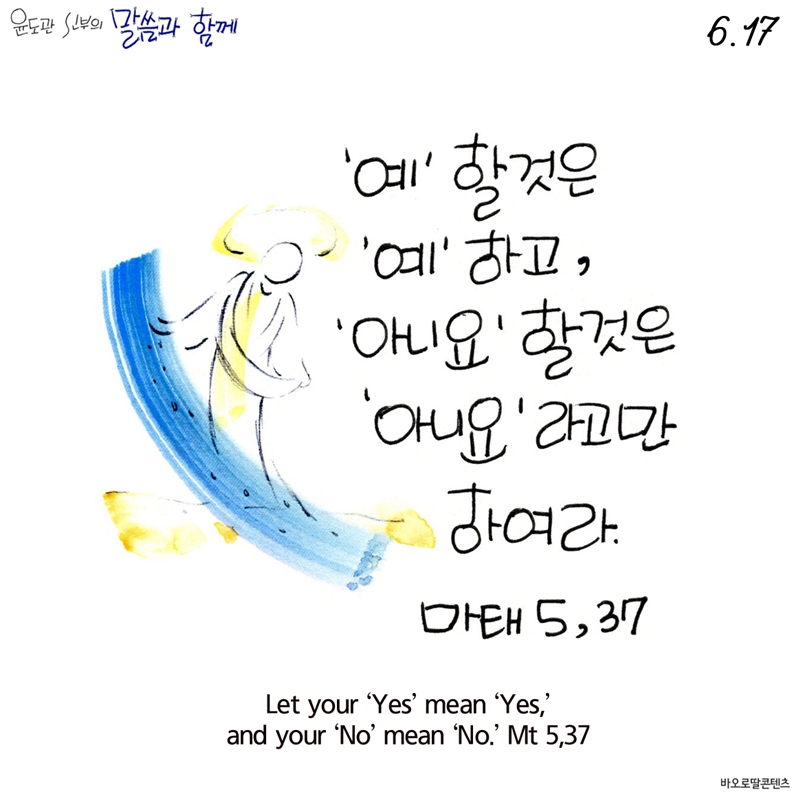 윤도관 신부의 말씀과 함께
6.17
'예' 할것은
'예' 하고,
'아니요' 할것은
'아니요' 라고만
하여라.
마태 5,37
Let your ‘Yes’ mean ‘Yes,’
and your ‘No’ mean ‘No.’ Mt 5,37
바오로딸콘텐츠